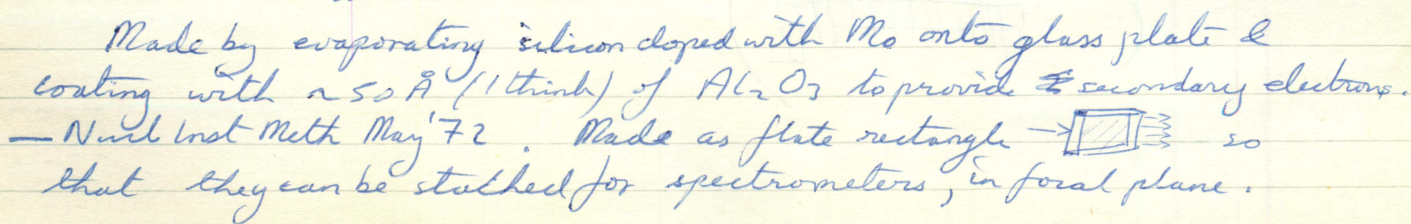 Made by evaporating silicon doped with Mo onto glass plate &
coating with ~50 Å (I think) of Al2O3 to provide secondary electrons.
— Nucl Inst Meth May '72. Made as flate rectangle → so
that they can be stacked for spectrometers, in focal plane.